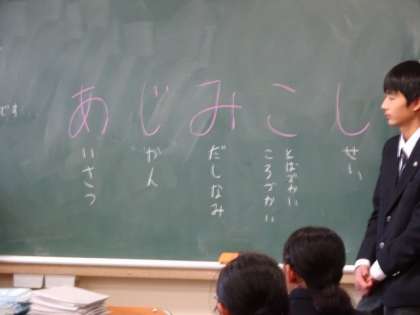 です
あじみこし
いさつ
かん
だしなみ
とばづかい
ころづかい
せい